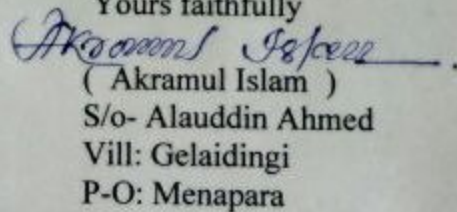 Yours faithfully
Akramul Islam
( Akramul Islam )
S/o- Alauddin Ahmed
Vill: Gelaidingi
P-O: Menapara